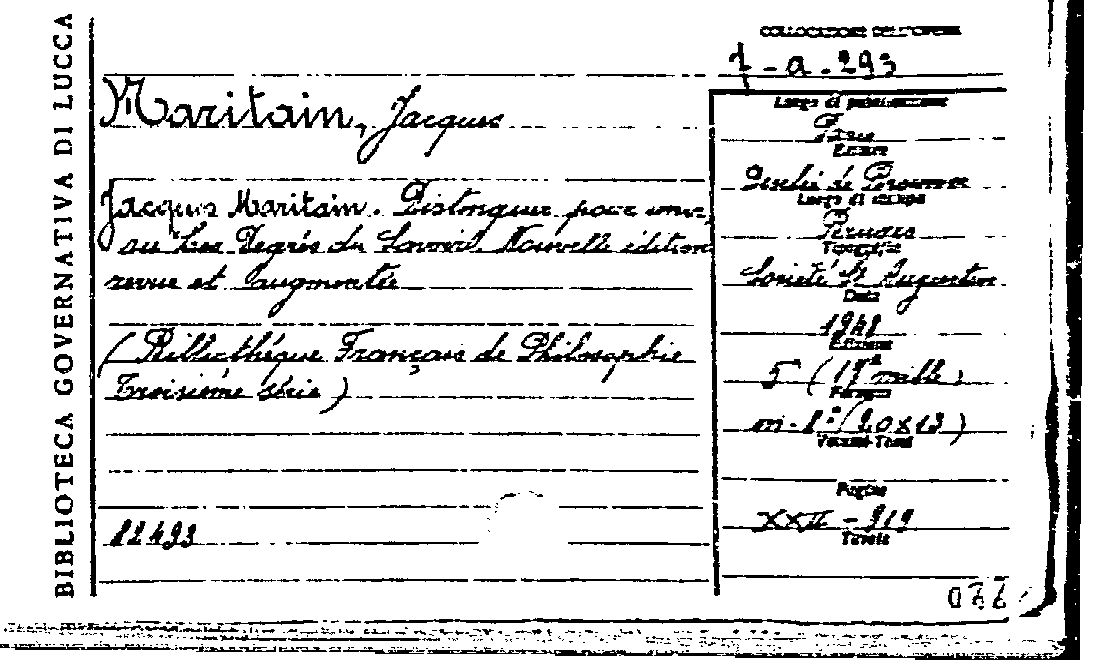 BIBLIOTECA GOVERNATIVA DI LUCCA
COLLOCAZIONE DELL'OPERA
7-a-293
Maritain, Jacques
Jacques Maritain. Distinguer pour unir,
ou Les Degrés du Savoir. Nouvelle édition
revue et augmentée
(Bibliothèque Français de Philosophie
Troisième série)
12493
Luogo di pubblicazione
Paris
Editore
Desclée de Brouwer
Luogo di stampa
Bruges
Tipografia
Société St Augustin
Data
1948
Edizione
5 (19e mille)
Formato
in-8° (20x13)
Volumi-Tomi
Pagine
XXII - 919
Tavole